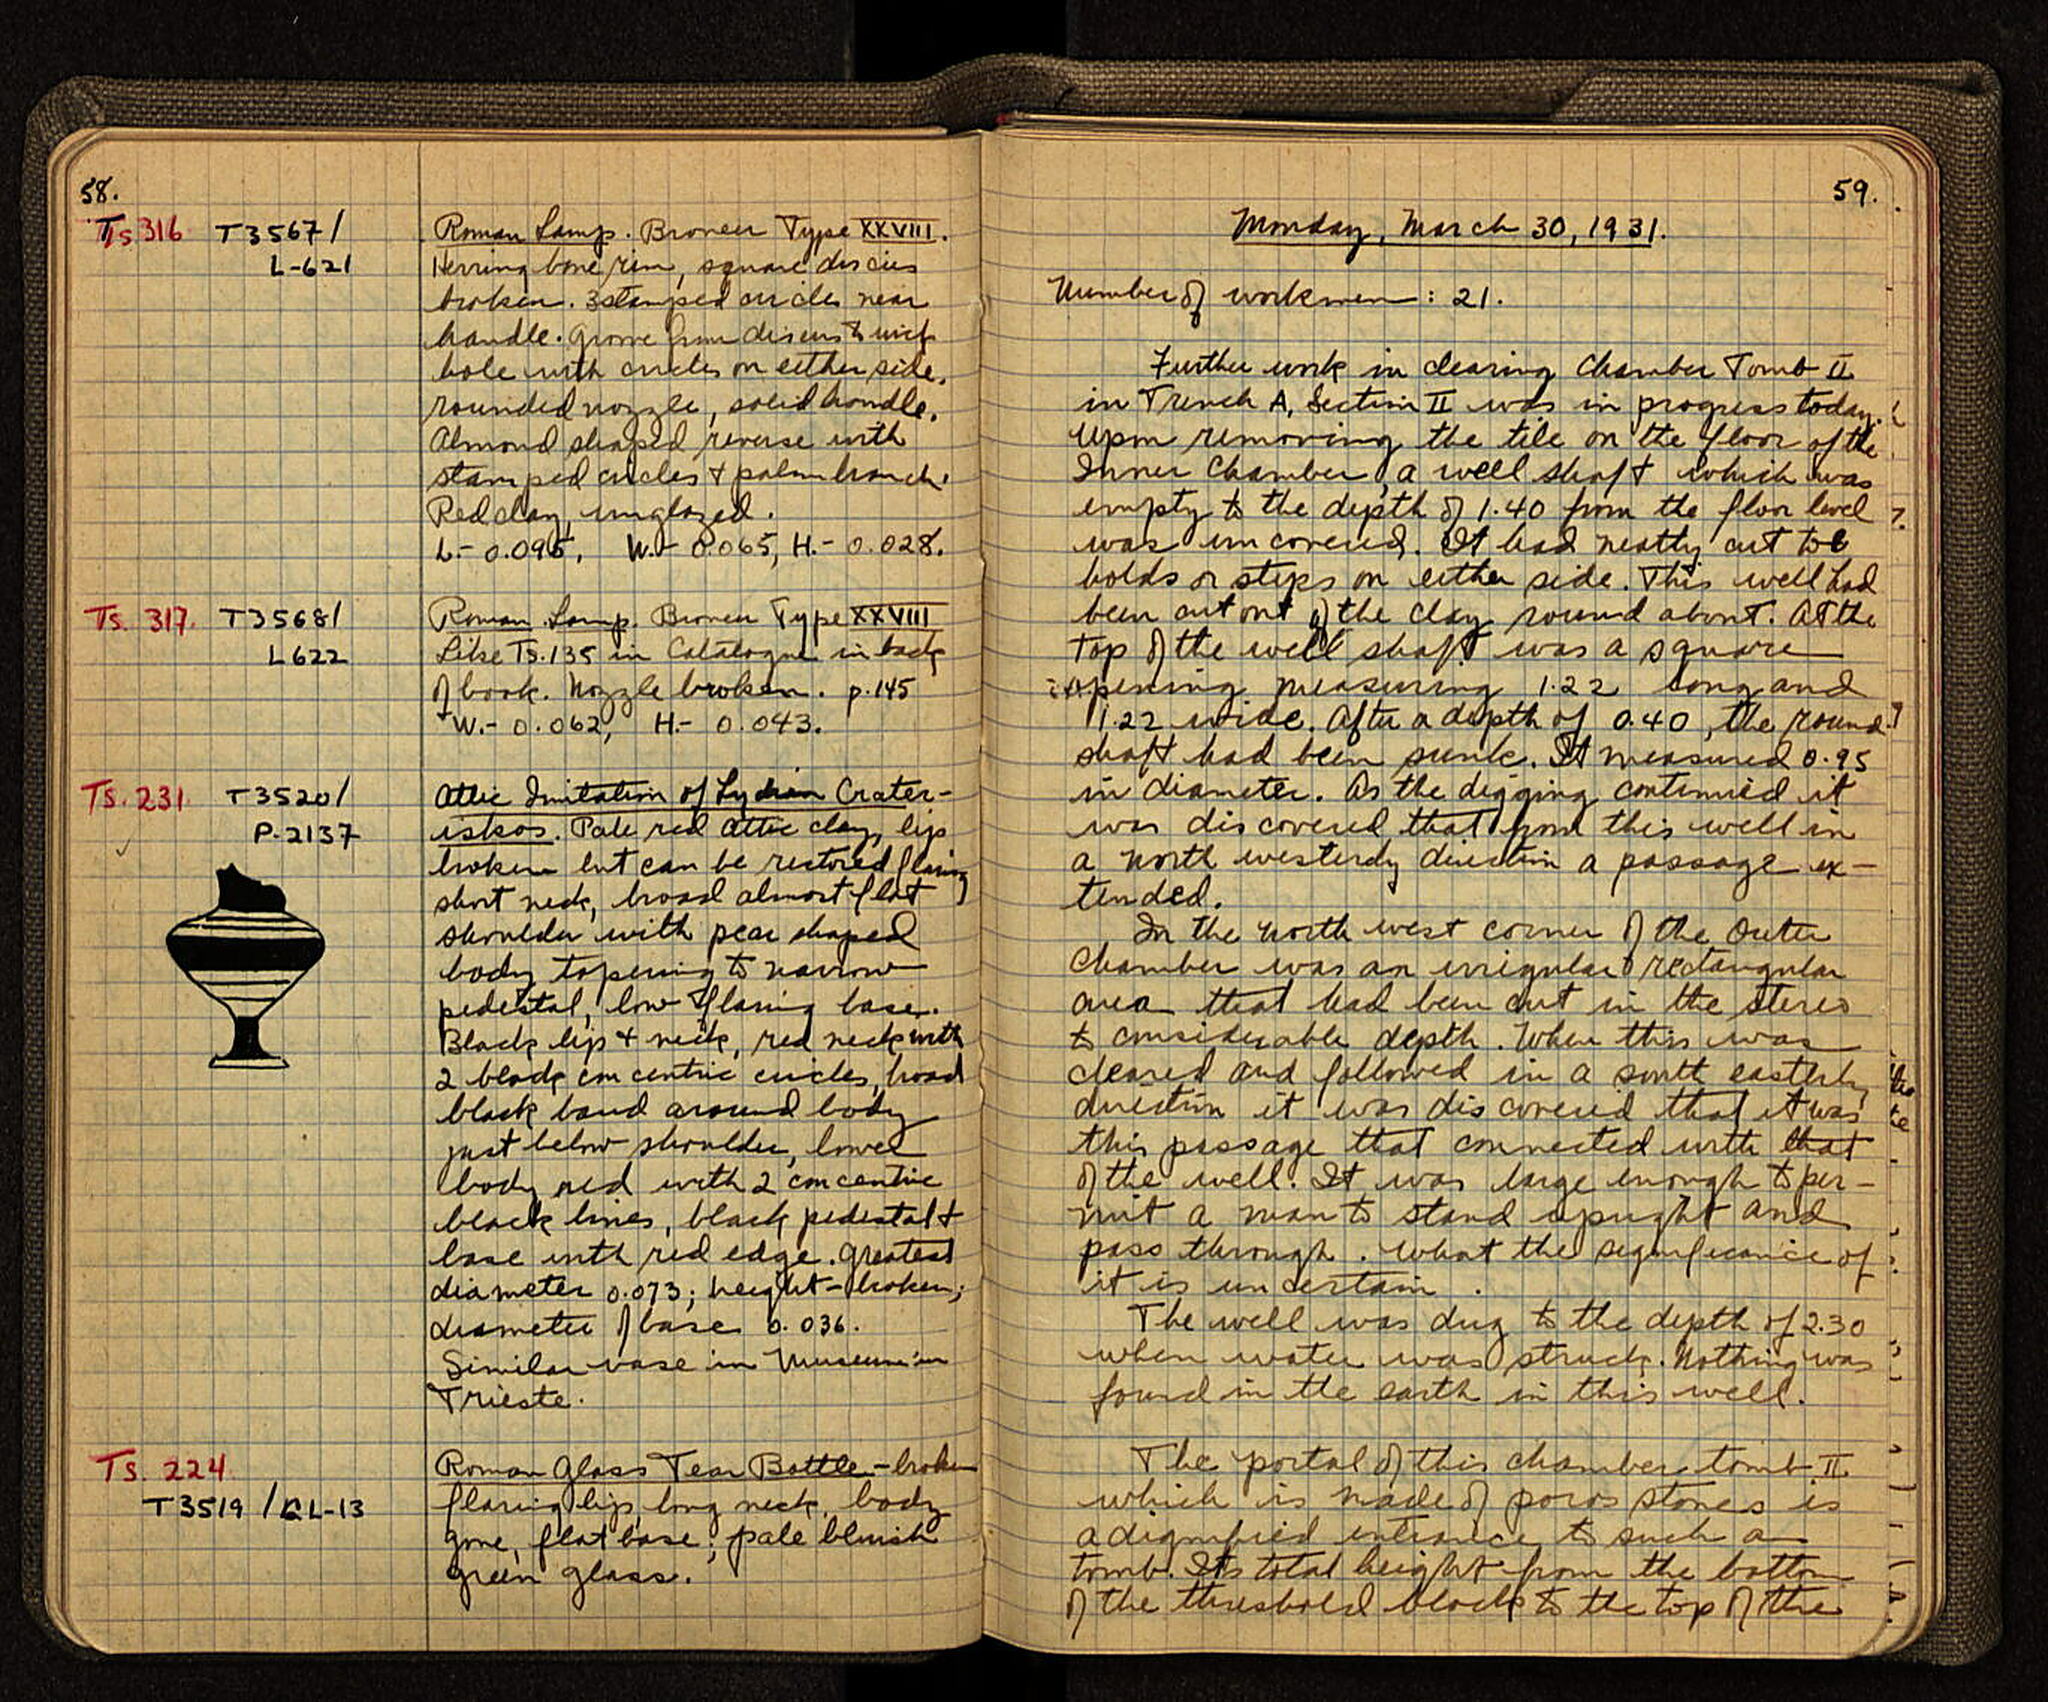 58.
Ts 316 T3567/ Roman Lamp. Broneer Type XXVIII.
L-621 Herring bone rim, square discus
broken. 3 stamped circles near
handle. Groove from discus to wick
hole with circles on either side,
rounded nozzle, solid handle.
Almond shaped reverse with
stamped circles & palm branch.
Red clay, unglazed.
L.- 0.095, W.- 0.065, H.- 0.028.
Ts. 317. T3568/ Roman Lamp. Broneer Type XXVIII
L622 Like Ts.135 in Catalogue in back
of book. Nozzle broken. p.145
W.- 0.062, H.- 0.043.
Ts. 231 T3520/ Attic Imitation of Lydian Crater-
P-2137 iskos. Pale red Attic clay, lip
broken but can be restored flaring
short neck, broad almost flat
shoulder with pear shaped
body tapering to narrow
pedestal, low flaring base.
Black lip & neck, red neck with
2 black concentric circles, broad
black band around body
just below shoulder, lower
body red with 2 concentric
black lines, black pedestal &
base with red edge. Greatest
diameter 0.073; height - broken;
diameter of base 0.036.
Similar vase in Museum in
Trieste.
Ts. 224 Roman Glass Tear Bottle - broken
T3519 / GL-13 flaring lip, long neck, body
gone, flat base; pale bluish
green glass.
59.
Monday, March 30, 1931.
Number of workmen: 21.
Further work in clearing Chamber Tomb II
in Trench A, Section II was in progress today.
Upon removing the tile on the floor of the
Inner Chamber, a well shaft which was
empty to the depth of 1.40 from the floor level
was uncovered. It had neatly cut toe
holds or steps on either side. This well had
been cut out of the clay round about. At the
top of the well shaft was a square
opening measuring 1.22 long and
1.22 wide. After a depth of 0.40, the round
shaft had been sunk. It measured 0.95
in diameter. As the digging continued it
was discovered that from this well in
a north westerly direction a passage ex-
tended.
In the north west corner of the Outer
Chamber was an irregular rectangular
area that had been cut in the stereo
to considerable depth. When this was
cleared and followed in a south easterly
direction it was discovered that it was
this passage that connected with that
of the well. It was large enough to per-
mit a man to stand upright and
pass through. What the significance of
it is uncertain.
The well was dug to the depth of 2.30
when water was struck. Nothing was
found in the earth in this well.
The portal of this chamber tomb II
which is made of poros stones is
a dignified entrance to such a
tomb. Its total height from the bottom
of the threshold block to the top of the